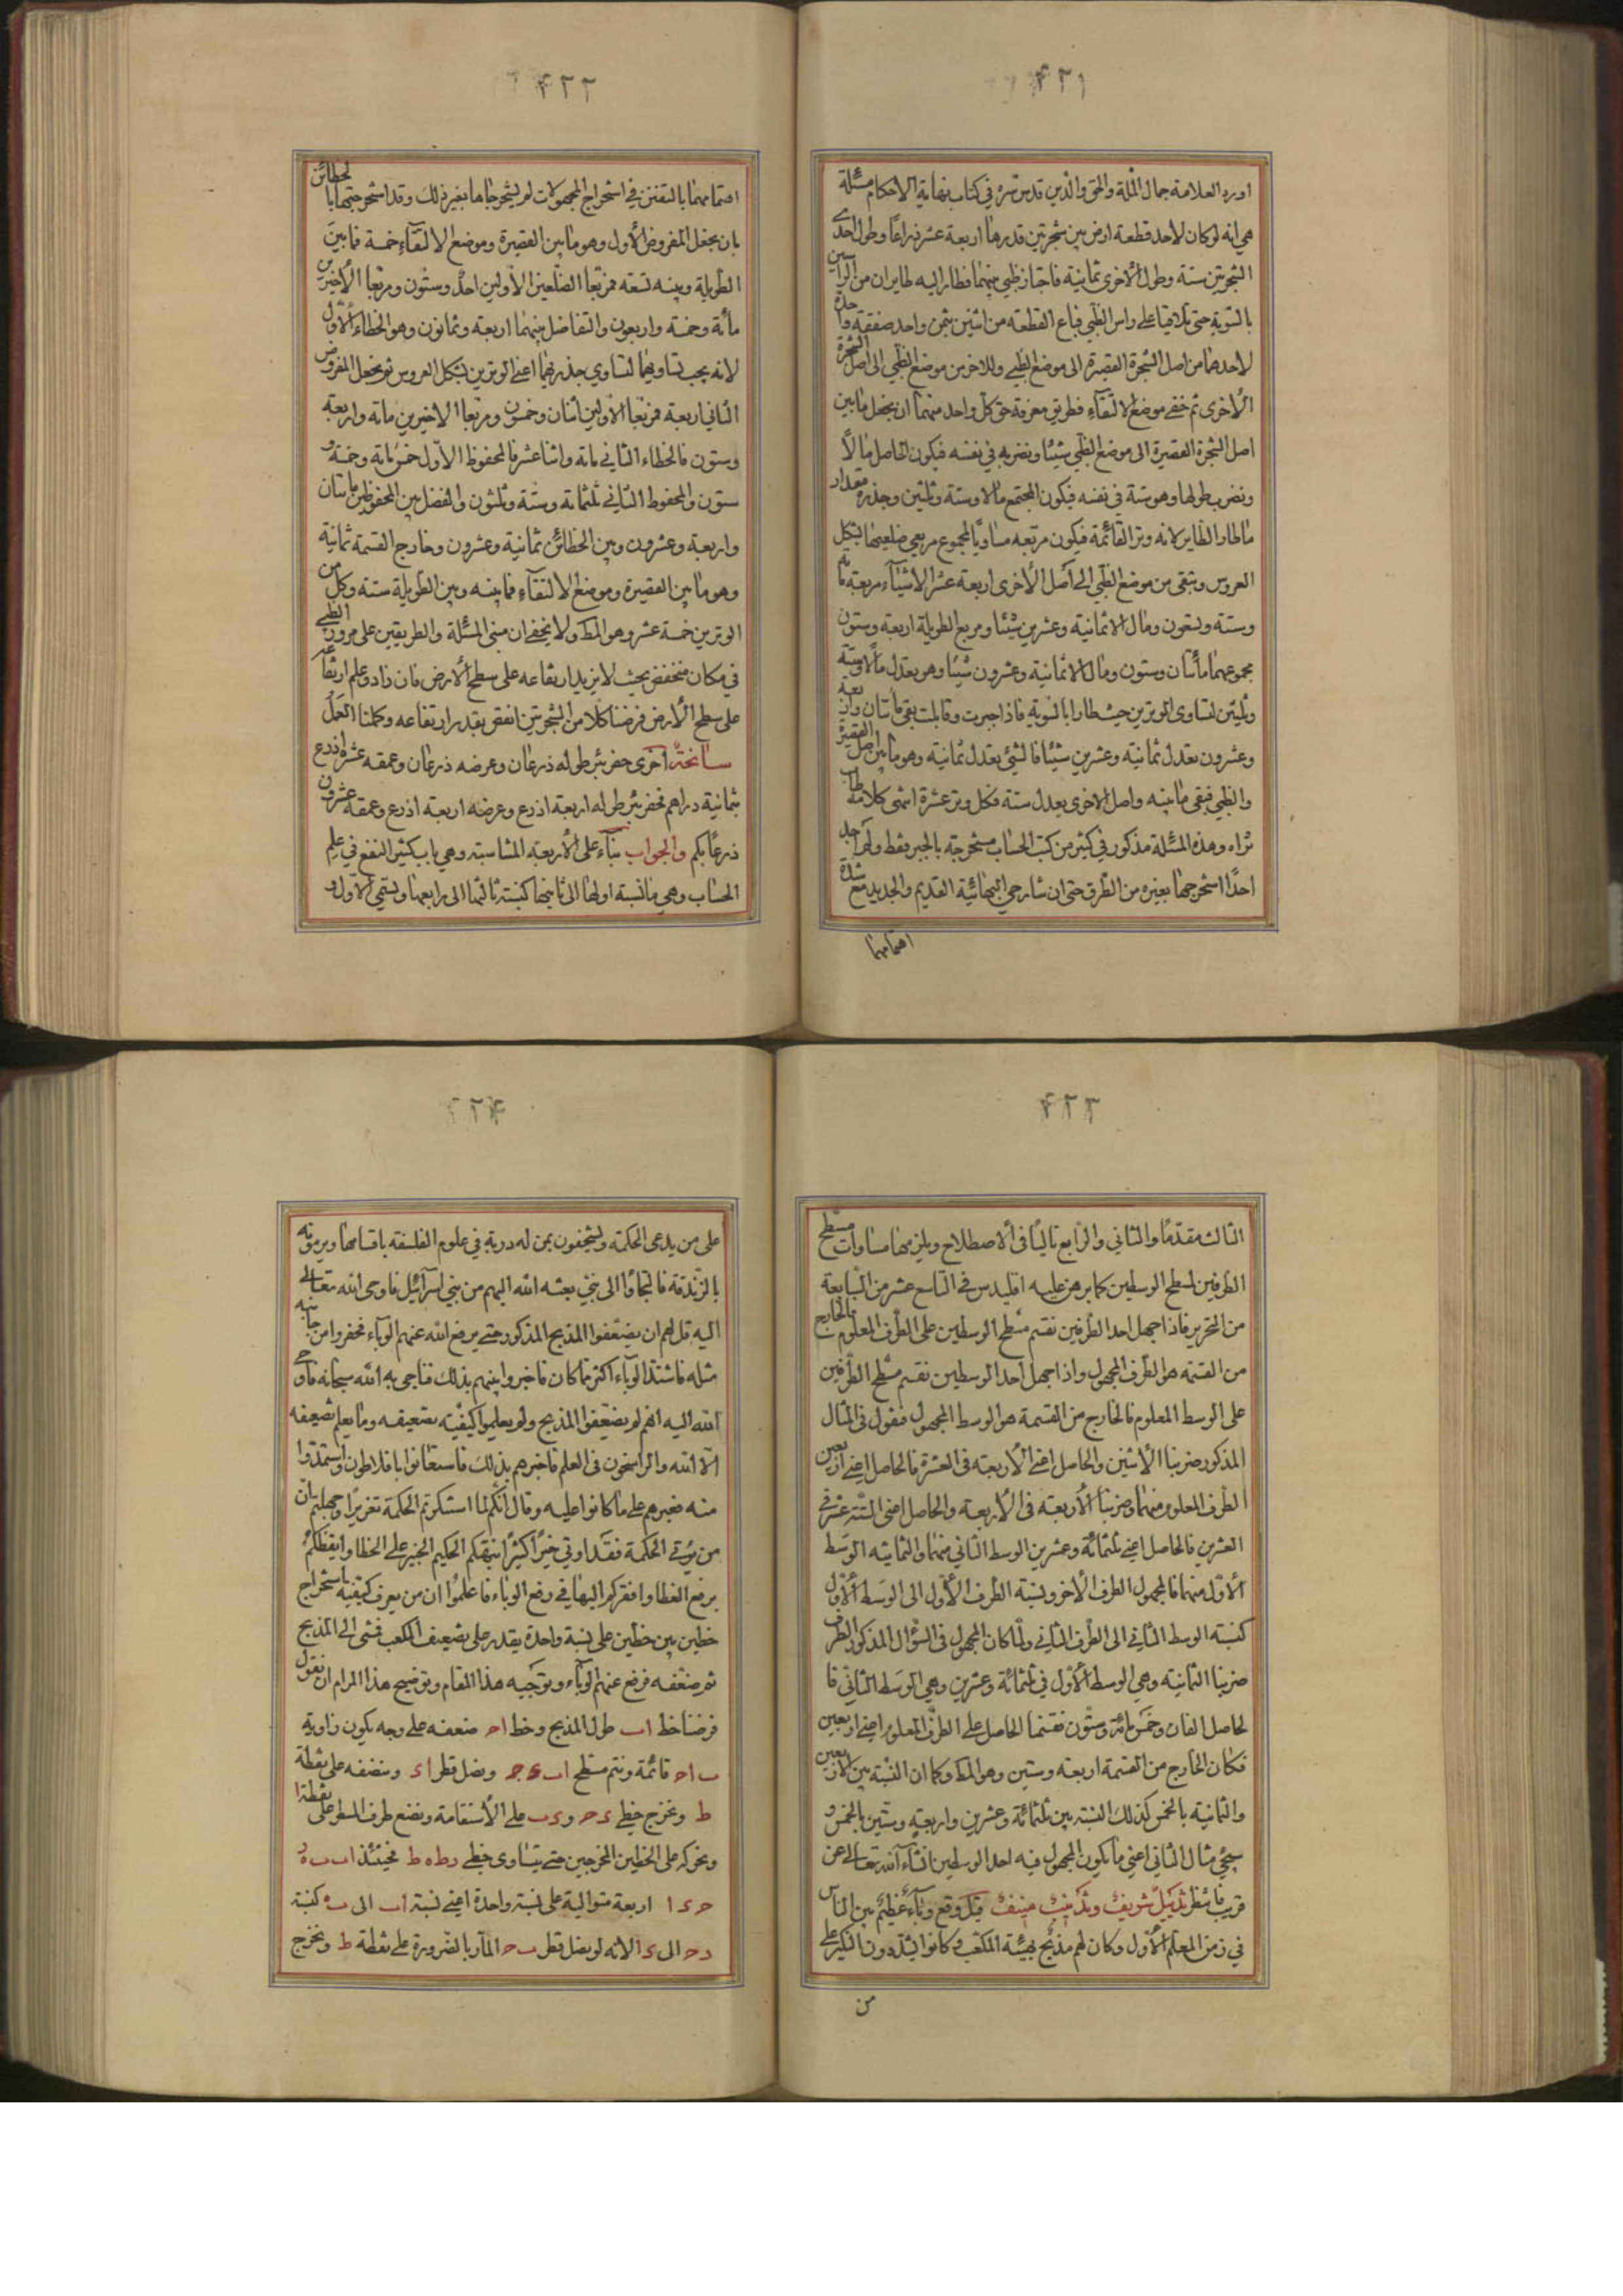 ۴۲۱
اورد العلامة جمال الملة والحق والدين قدس سره في كتاب نهاية الاحكام مسئلة
هي انه لوكان لاحد قطعة ارض بين شجرتين قدرها اربعة عشر ذراعًا وطول احدى
الشجرتين ستة وطول الأخرى ثمانية فاجتاز ظبي بينهما فطار اليه طايران من الراسين
بالسوية حتى تلاقيا على راس الظبي فباع القطعة من اثنين بثمن واحد صفقة واحدة
لاحدهما من اصل الشجرة القصيرة الى موضع الظبي وللاخر من موضع الظبي الى اصل الشجرة
الأخرى ثم خفي موضع الالتقاء فطريق معرفة حق كل واحد منهما ان يجعل مابين
اصل الشجرة القصيرة الى موضع الظبي شيئًا ونضربه في نفسه فيكون الحاصل مالًا
ونضرب طولها وهو ستة في نفسه فيكون المجتمع مالًا وستة وثلثين وجذره مقدار
ماطار الطاير لانه وتر القائمة فيكون مربعه مساويًا لمجموع مربعي ضلعيها بشكل
العروس ويبقى من موضع الظبي الى اصل الأخرى اربعة عشر الا شيئًا مربعه مائة
وستة وتسعون ومال الا ثمانية وعشرين شيئا ومربع الطويلة اربعة وستون
مجموعهما مأتان وستون ومال الا ثمانية وعشرون شيئًا وهو يعدل مالًا وستة
وثلثين لتساوى الوترين حيث طارا بالسوية فاذا جبرت وقابلت بقى مأتان واربعة
وعشرون تعدل ثمانية وعشرين شيئًا فالشئ يعدل ثمانية وهو مابين اصل القصيرة
والظبي فبقى مابينه واصل الاخرى يعدل ستة فكل وتر عشرة انتهى كلامه طاب
ثراه وهذه المسئلة مذكور في كثير من كتب الحساب مستخرجة بالجبر فقط ولم اجد
احدًا استخرجها بغيره من الطرق حتى ان شارحي البهائية القديم والجديد مع شدة
اهتمامهما
۴۲۲
اهتمامهما بالتفنن في استخراج المجهولات لم يستخرجاها بغير ذلك وقد استخرجتها بالخطائن
بان يجعل المفروض الأول وهو مابين القصيرة وموضع الالتقاء خمسة فمابين
الطويلة وبينه تسعة فمربعا الضلعين الأولين احدٌ وستون ومربعا الأخيرين
مأة وخمسة واربعون والتفاضل بينهما اربعة وثمانون وهو الخطاء الأول
لانه يجب تساويهما لتساوي جذريهما اعني الوترين بشكل العروس ثم نجعل المفروض
الثاني اربعة فمربعا الأولين اثنان وخمسون ومربعا الاخيرين مائة واربعة
وستون فالخطاء الثاني مائة واثناعشر فالمحفوظ الأول خمسمائة وخمسة و
ستون والمحفوظ الثاني ثلثمائة وستة وثلثون والفضل بين المحفوظين مأتان
واربعة وعشرون وبين الخطائن ثمانية وعشرون وخارج القسمة ثمانية
وهو مابين القصيرة وموضع الالتقاء فمابينه وبين الطويلة ستة وكل من
الوترين خمسة عشر وهو المط ولا يخفى ان مبنى المسئلة والطريقين على مرور الظبي
في مكان منخفض بحيث لا يزيد ارتفاعه على سطح الأرض فان زاد وعلم ارتفاعه
على سطح الأرض فرضنا كلا من الشجرتين انقص بقدر ارتفاعه وكملنا العمل
سانحة اخرى حفر بئر طوله ذرعان وعرضه ذرعان وعمقه عشرة اذرع
بثمانية دراهم فحفر بئر طوله اربعة اذرع وعرضه اربعة اذرع وعمقه عشرون
ذرعًا بكم والجواب بناء على الأربعة المتناسبة وهي باب كثير النفع في علم
الحساب وهي مانسبة اولها الى ثانيها كنسبة ثالثها الى رابعها ويسمى الأول و
۴۲۳
الثالث مقدمًا والثاني والرابع تاليًا في الأصطلاح ويلزمها مساوات مسطح
الطرفين لمسطح الوسطين كما برهن عليه اقليدس في التاسع عشر من السابعة
من التحرير فاذا جهل احد الطرفين نقسم مسطح الوسطين على الطرف المعلوم فالخارج
من القسمة هو الطرف المجهول واذا جهل احد الوسطين نقسم مسطح الطرفين
على الوسط المعلوم فالخارج من القسمة هو الوسط المجهول فنقول في المثال
المذكور ضربنا الاثنين والحاصل اعني الأربعة في العشرة فالحاصل اعني اربعين
الطرف المعلوم منهما وضربنا الأربعة في الأربعة والحاصل اعني الستة عشر في
العشرين فالحاصل اعني ثلثمائة وعشرين الوسط الثاني منهما والثمانية الوسط
الأول منهما فالمجهول الطرف الأخر ونسبة الطرف الأول الى الوسط الأول
كنسبة الوسط الثاني الى الطرف الثاني ولما كان المجهول في السؤال المذكور الطرف
ضربنا الثمانية وهي الوسط الأول في ثلثمائة وعشرين وهي الوسط الثاني فا
لحاصل الفان وخمسمائة وستون فقسمنا الحاصل على الطرف المعلوم اعني اربعين
فكان الخارج من القسمة اربعة وستين وهو المط وكما ان النسبة بين الأربعين
والثمانية بالخمس كذلك النسبة بين ثلثمائة وعشرين واربعة وستين بالخمس و
سيجئ مثال الثاني اعني مايكون المجهول فيه احد الوسطين انشاء الله تعالى عن
قريب فانتظر تذييل شريف وتذنيب منيف قيل وقع وباء عظيم بين الناس
في زمن المعلم الأول وكان لهم مذبح بهيئة المكعب وكانوا يشددون النكير على
من
۴۲۴
على من يدعى الحكمة ويستخفون بمن له دربة في علوم الفلسفة باقسامها ويرمونه
بالزندقة فالتجاؤا الى نبي بعثه الله اليهم من بني اسرائيل فاوحى الله تعالى
اليه قل لهم ان يضعفوا المذبح المذكور حتى يرفع الله عنهم الوباء فحفروا من جانبه
مثله فاشتد الوباء اكثر مما كان فاخبروا نبيهم بذلك فناجى به الله سبحانه فاوحى
الله اليه انهم لم يضعفوا المذبح ولم يعلموا كيفية تضعيفه ومايعلم تضعيفه
الا الله والراسخون في العلم فاخبرهم بذلك فاستعانوا بافلاطون واستمدوا
منه فعيرهم على ماكانوا عليه وقال انكم لما استنكرتم الحكمة تغريرًا وجهلتم ان
من يؤتى الحكمة فقد اوتي خيرًا كثيرًا نبهكم الحكيم الخبير على الخطا وايقظكم
برفع الغطا وافقركم اليها في رفع الوباء فاعلموا ان من يعرف كيفية استخراج
خطين بين خطين على نسبة واحدة يقدر على تضعيف المكعب فمشى الى المذبح
ثم ضعفه فرفع عنهم الوباء وتوجيه هذا المقام وتوضيح هذا المرام ان نقول
فرضنا خط اب طول المذبح وخط اح ضعفه على وجه يكون زاوية
ب اح قائمة ونتم مسطح اب ء ح ونصل قطر اء وننصفه على نقطة
ط ونخرج خطي ء ح وء ب على الأستقامة ونضع طرف المسطر على نقطة ا
ونحركه على الخطين المخرجين حتى يتساوى خطي رط ه ط فحينئذ اب ب ه ر
ح ء ا اربعة متوالية على نسبة واحدة اعني نسبة اب الى ب ه كنسبة
رح الى ء ا لانه لو نصل قطر ب ح المار بالضرورة على نقطة ط ونخرج